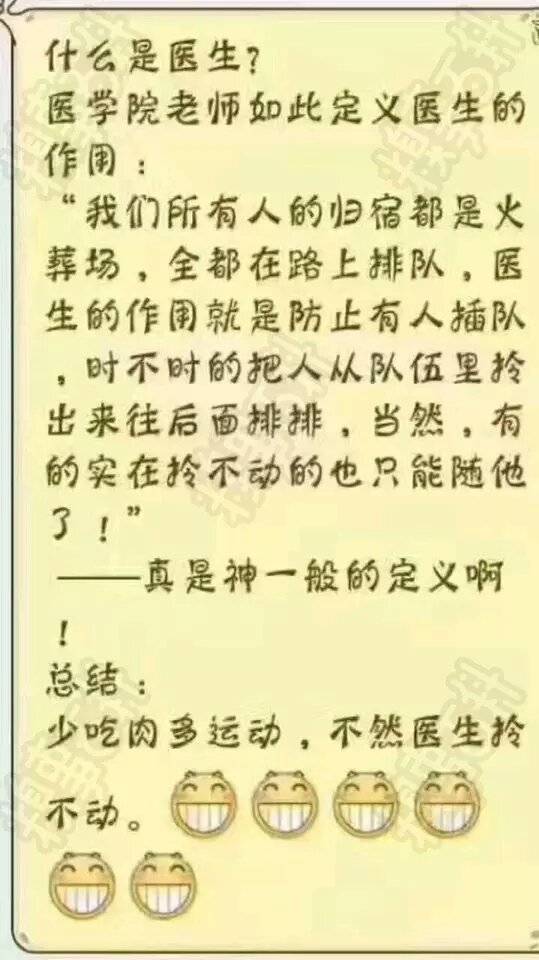 什么是医生?
医学院老师如此定义医生的
作用：
“我们所有人的归宿都是火
葬场，全都在路上排队，医
生的作用就是防止有人插队
，时不时的把人从队伍里拎
出来往后面排排，当然，有
的实在拎不动的也只能随他
了！”
——真是神一般的定义啊
！
总结：
少吃肉多运动，不然医生拎
不动。